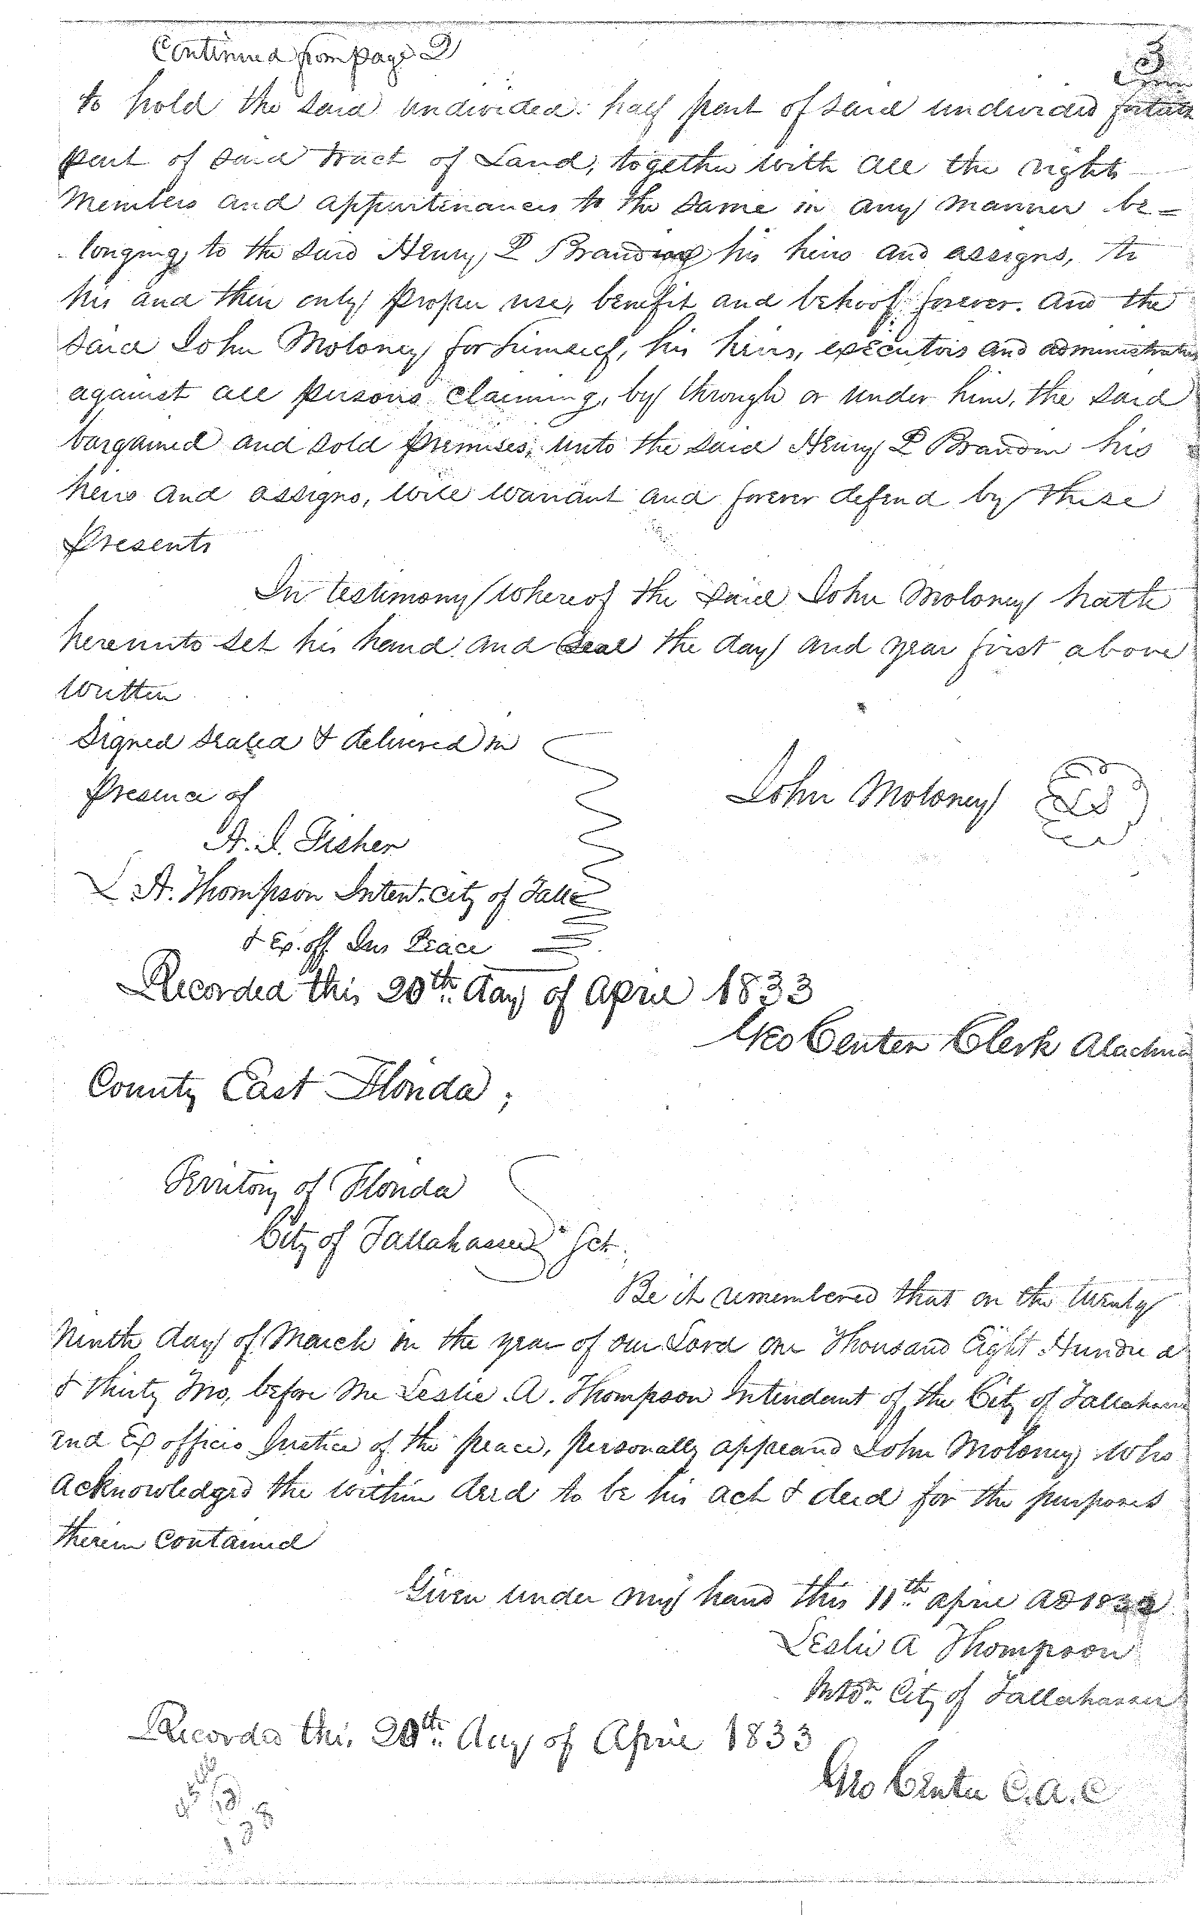 Continued from page 2
3
to hold the said undivided half part of said undivided
part of said tract of Land, together with all the rights
Members and appurtinances to the same in any manner be=
longing to the said Henry P Branding his heirs and assigns, to
his and their only proper use, benefit and behoof forever. And the
said John Moloney for himself, his heirs, executors and administrators
against all persons claiming, by through or under him, the said
bargained and sold premises, unto the said Henry P Brandin his
heirs and assigns, will warrant and forever defend by these
presents
In testimony whereof the said John Moloney hath
hereunto set his hand and Seal the day and year first above
written
Signed sealed & delivered in
presence of
John Moloney LS
A. I. Fisher
L. A. Thompson Intent. City of Talle
& Ex. off. Jus Peace
Recorded this 20th day of April 1833
Geo Center Clerk Alachua
County East Florida ;
Territory of Florida
City of Tallahassee Sct.
Be it remembered that on the twenty
ninth day of March in the year of our Lord one Thousand Eight Hundred
& thirty Two, before me Leslie A. Thompson Intendant of the City of Tallahassee
and Ex officio Justice of the peace, personally appeared John Moloney who
acknowledged the within deed to be his act & deed for the purposes
therein contained
Given under my hand this 11th April AD
Leslie A Thompson
Intdt. City of Tallahassee
Recorded this 20th day of April 1833
Geo Center C. A. C
138